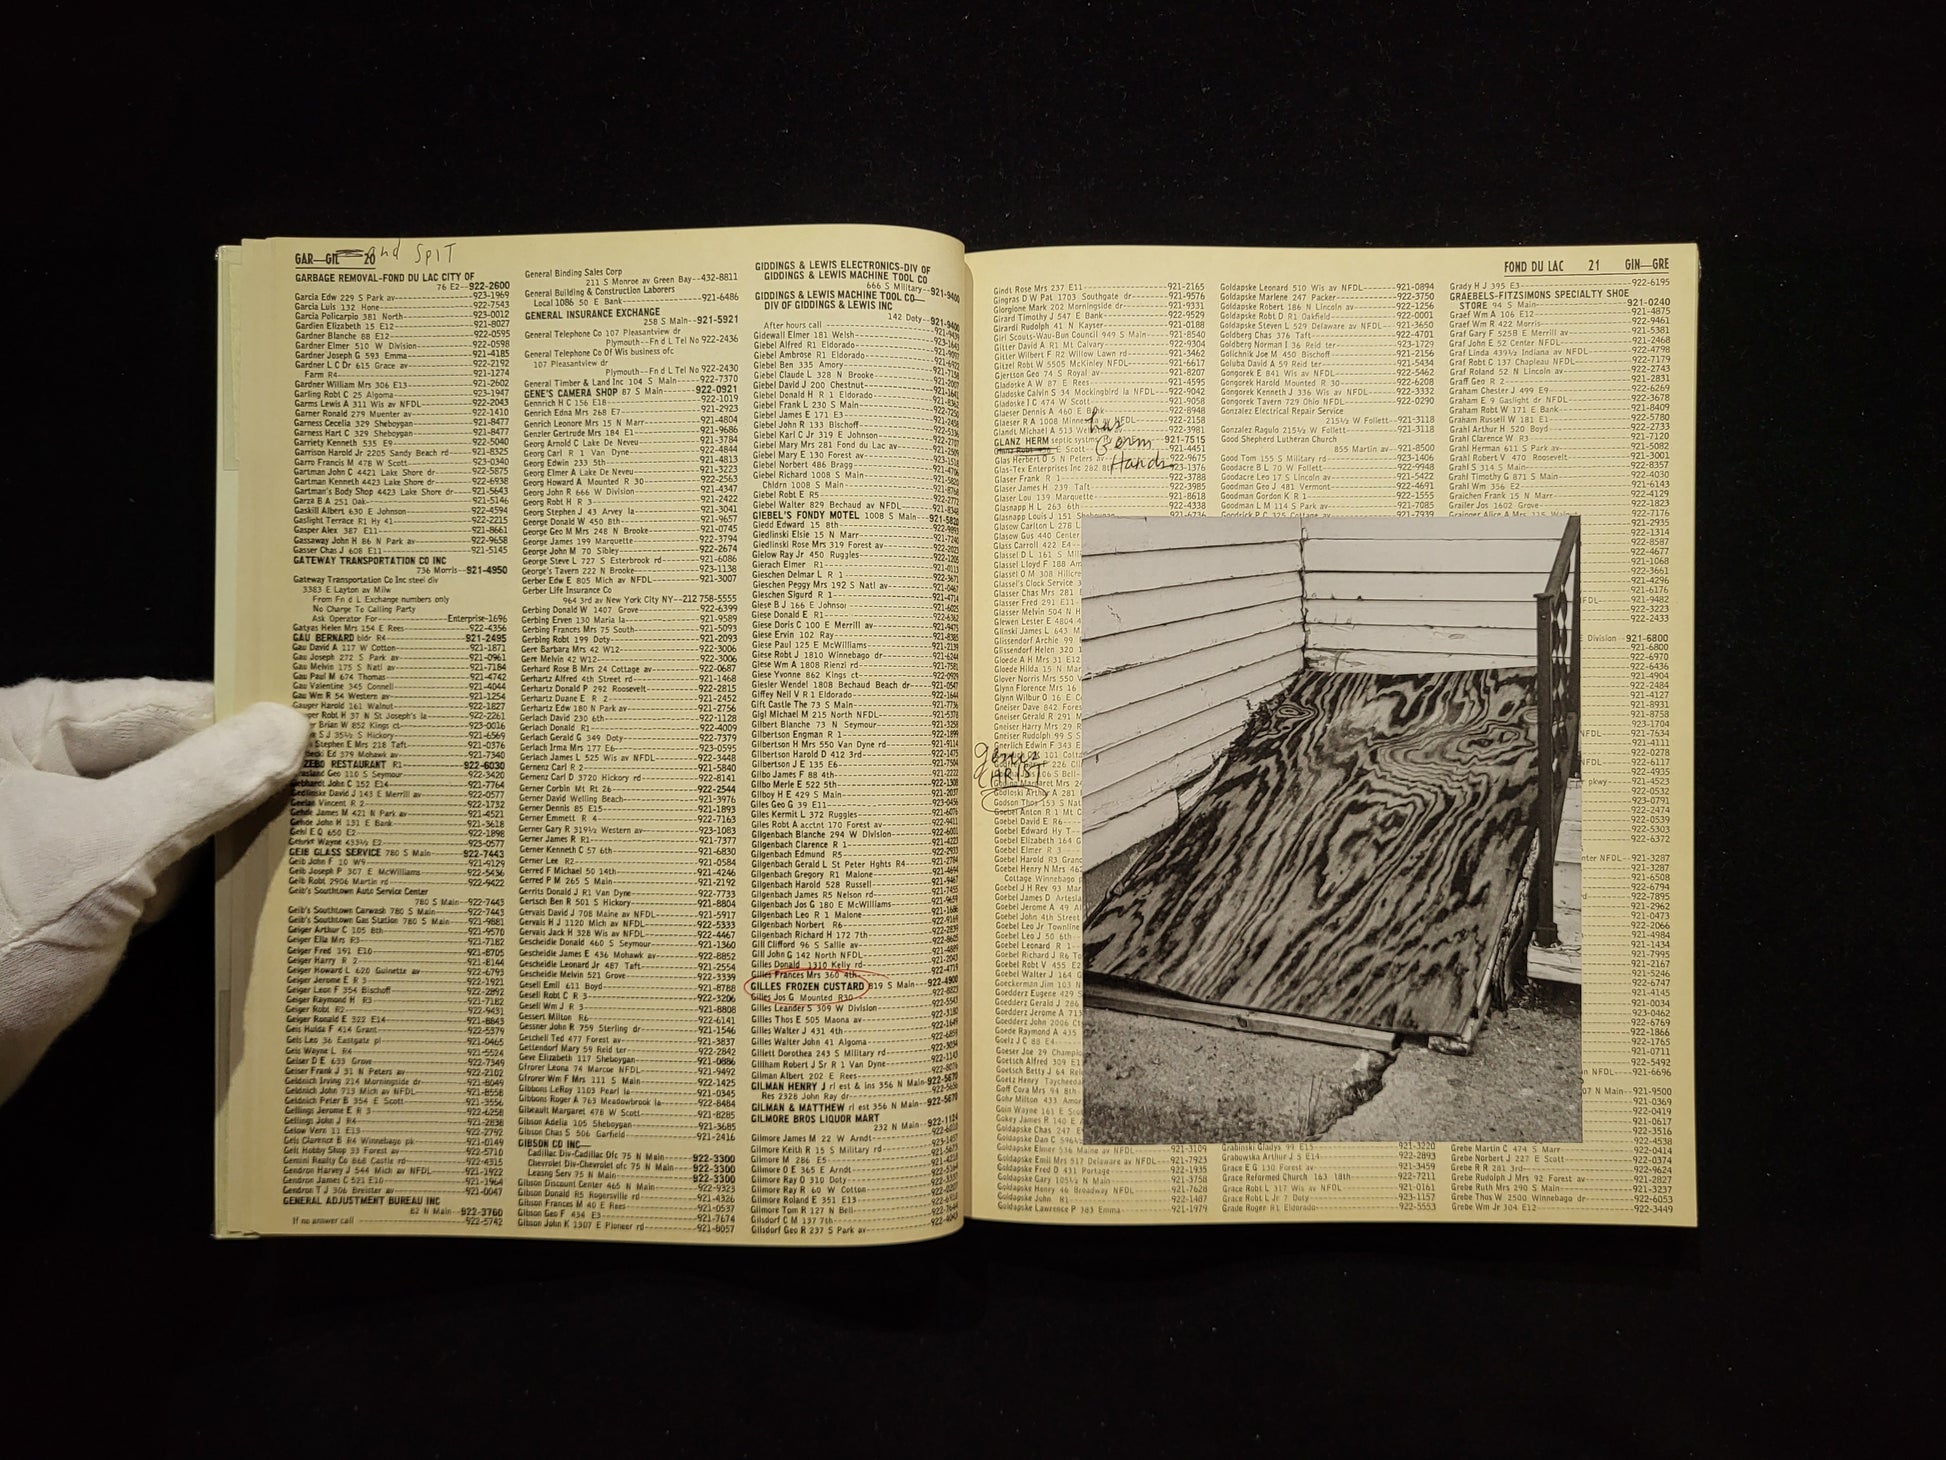 GAR—GIL 20 and SPIT
GARBAGE REMOVAL-FOND DU LAC CITY OF
76 E2--922-2600
Garcia Edw 229 S Park av 923-1969
Garcia Luis 132 Hone 922-7543
Garcia Policarpio 381 North 923-0012
Gardien Elizabeth 15 E12 921-8027
Gardner Blanche 88 E12 922-0595
Gardner Elmer 510 W Division 922-0598
Gardner Joseph G 593 Emma 921-4185
Gardner L C Dr 615 Grace av 922-2192
Farm R4 921-1274
Gardner William Mrs 306 E13 921-2602
Garling Robt C 25 Algoma 923-1947
Garms Lewis A 311 Wis av NFDL 922-2043
Garner Ronald 279 Muenter av 922-1410
Garness Cecelia 329 Sheboygan 921-8477
Garness Hart C 329 Sheboygan 921-8477
Garriety Kenneth 535 E9 922-5040
Garrison Harold Jr 2205 Sandy Beach rd 921-8325
Garro Francis M 478 W Scott 923-0340
Gartman John C 4421 Lake Shore dr 922-5875
Gartman Kenneth 4423 Lake Shore dr 922-6938
Gartman's Body Shop 4423 Lake Shore dr 921-5643
Garza B A 251 Oak 921-5146
Gaskill Albert 630 E Johnson 922-4594
Gaslight Terrace R1 Hy 41 922-2215
Gasper Alex 387 E11 921-8661
Gassaway John H 86 N Park av 922-9658
Gasser Chas J 608 E11 921-5145
GATEWAY TRANSPORTATION CO INC
736 Morris--921-4950
Gateway Transportation Co Inc steel div
3383 E Layton av Milw
From Fn d L Exchange numbers only
No Charge To Calling Party
Ask Operator For Enterprise-1696
Gatyas Helen Mrs 154 E Rees 922-4356
GAU BERNARD bldr R4 921-2495
Gau David A 117 W Cotton 921-1871
Gau Joseph 272 S Park av 921-0961
Gau Melvin 175 S Natl av 921-7184
Gau Paul M 674 Thomas 921-4742
Gau Valentine 345 Connell 921-4044
Gau Wm R 54 Western av 921-1254
Gauger Harold 161 Walnut 922-1827
Robt H 37 N St Joseph's la 922-2261
Brian W 852 Kings ct 923-0016
S J 35½ S Hickory 921-6569
Stephen E Mrs 218 Taft 921-0376
Ed 379 Mohawk av 921-7340
RESTAURANT R1 922-6030
Geo 110 S Seymour 922-3420
John C 152 E14 921-7764
David J 143 E Merrill av 922-0577
Vincent R 2 922-1732
James M 421 N Park av 921-4521
John H 131 E Bank 921-3618
Gehl E Q 650 E2 922-1898
Gehrke Wayne 433½ E2 923-0577
GEIB GLASS SERVICE 780 S Main 922-7443
Geib John F 10 W9 921-9129
Geib Joseph P 307 E McWilliams 922-5436
Geib Robt 2906 Martin rd 922-9422
Geib's Southtown Auto Service Center
780 S Main 922-7443
Geib's Southtown Carwash 780 S Main 922-7443
Geib's Southtown Gas Station 780 S Main 921-9881
Geiger Arthur C 105 8th 921-9570
Geiger Ella Mrs R3 921-7182
Geiger Fred 191 E10 921-8705
Geiger Harry R 2 921-8144
Geiger Howard L 620 Guinette av 922-6793
Geiger Jerome E R 3 921-1921
Geiger Leon F 354 Bischoff 922-2892
Geiger Raymond H R3 921-7182
Geiger Robt R2 922-9431
Geiger Ronald E 322 E14 921-8843
Geis Hulda F 414 Grant 922-5379
Geis Leo 36 Eastgate pl 921-0465
Geis Wayne L R4 921-5524
Geiser D E 633 Grove 922-7349
Geiser Frank J 31 N Peters av 922-2102
Geldnich Irving 214 Morningside dr 921-8049
Geldnich John 713 Mich av NFDL 921-8558
Geldnich Peter B 354 E Scott 921-3556
Gellings Jerome E R 3 922-6258
Gellings John J R4 921-2838
Gelow Vern 11 E13 922-2792
Gels Clarence B R4 Winnebago pk 921-0149
Gelt Hobby Shop 33 Forest av 922-5710
Gemini Realty Co 868 Castle rd 922-4315
Gendron Harvey J 544 Mich av NFDL 921-1922
Gendron James C 521 E10 921-1964
Gendron T J 306 Breister av 921-0047
GENERAL ADJUSTMENT BUREAU INC
82 N Main--922-3760
If no answer call 922-5742
General Binding Sales Corp
211 S Monroe av Green Bay--432-8811
General Building & Construction Laborers
Local 1086 50 E Bank 921-6486
GENERAL INSURANCE EXCHANGE
258 S Main--921-5921
General Telephone Co 107 Pleasantview dr
Plymouth--Fnd L Tel No 922-2436
General Telephone Co Of Wis business ofc
107 Pleasantview dr
Plymouth--Fn d L Tel No 922-2430
General Timber & Land Inc 104 S Main 922-7370
GENE'S CAMERA SHOP 87 S Main 922-0921
Gennrich H C 156 E18 922-1019
Genrich Edna Mrs 268 E7 921-2923
Genrich Leonore Mrs 15 N Marr 921-4804
Genzler Gertrude Mrs 184 E1 921-9686
Georg Arnold C Lake De Neveu 921-3784
Georg Carl R 1 Van Dyne 922-4844
Georg Edwin 233 5th 921-4813
Georg Elmer A Lake De Neveu 921-3223
Georg Howard A Mounted R 30 922-2563
Georg John R 666 W Division 921-4347
Georg Robt H R 3 921-2422
Georg Stephen J 43 Arvey la 921-3041
George Donald W 450 8th 921-9657
George Geo M Mrs 248 N Brooke 921-0745
George James 199 Marquette 922-3794
George John M 70 Sibley 922-2674
George Steve L 727 S Esterbrook rd 921-6086
George's Tavern 222 N Brooke 923-1138
Gerber Edw E 805 Mich av NFDL 921-3007
Gerber Life Insurance Co
964 3rd av New York City NY--212 758-5555
Gerbing Donald W 1407 Grove 922-6399
Gerbing Erven 130 Maria la 921-9589
Gerbing Frances Mrs 75 South 921-5093
Gerbing Robt 199 Doty 921-2093
Gere Barbara Mrs 42 W12 922-3006
Gere Melvin 42 W12 922-3006
Gerhard Rose B Mrs 24 Cottage av 922-0687
Gerhartz Alfred 4th 921-1468
Gerhartz Donald P 292 Roosevelt 922-2815
Gerhartz Duane E R 2 921-2452
Gerhartz Edw 180 N Park av 922-2756
Gerlach David 230 6th 922-1128
Gerlach Donald R1 922-4009
Gerlach Gerald G 349 Doty 922-7379
Gerlach Irma Mrs 177 E6 923-0595
Gerlach James L 525 Wis av NFDL 922-3448
Gernenz Carl R 2 921-5840
Gernenz Carl D 3720 Hickory rd 922-8141
Gerner Corbin Mt Rt 26 922-2544
Gerner David Welling Beach 921-3976
Gerner Dennis 85 E15 921-1893
Gerner Emmett R 4 922-7163
Gerner Gary R 319½ Western av 923-1083
Gerner James R R1 921-7377
Gerner Kenneth C 57 6th 921-6830
Gerner Lee R2 921-0584
Gerred F Michael 50 14th 921-4246
Gerred P M 265 S Main 921-2192
Gerrits Donald J R1 Van Dyne 922-7733
Gertsch Ben R 501 S Hickory 921-8804
Gervais David J 708 Maine av NFDL 921-5917
Gervais H J 1120 Mich av NFDL 922-5333
Gervais Jack H 328 Wis av NFDL 922-4467
Gescheidle Donald 460 S Seymour 921-1360
Gescheidle James E 436 Mohawk av 922-8852
Gescheidle Leonard Jr 487 Taft 921-2554
Gescheidle Melvin 521 Grove 922-3339
Gesell Emil 611 Boyd 921-8788
Gesell Robt C R 3 922-3206
Gesell Wm J R 3 921-8808
Gessert Milton R6 922-6141
Gessner John R 759 Sterling dr 921-1546
Getschell Ted 477 Forest av 921-3837
Gettendorf Mary 59 Reid ter 922-2842
Geve Elizabeth 117 Sheboygan 921-0886
Gfrorer Leona 74 Marcoe NFDL 921-9492
Gfrorer Wm F Mrs 111 S Main 922-1425
Gibbons LeRoy 1103 Pearl la 921-0345
Gibbons Roger A 763 Meadowbrook la 922-8484
Gibeault Margaret 478 W Scott 921-8285
Gibson Adelia 105 Sheboygan 921-3685
Gibson Chas S 506 Garfield 922-2416
GIBSON CO INC—
Cadillac Div-Cadillac Ofc 75 N Main 922-3300
Chevrolet Div-Chevrolet ofc 75 N Main 922-3300
Leasing Serv 75 N Main 922-3300
Gibson Discount Center 465 N Main 922-9323
Gibson Donald R5 Rogersville rd 921-4326
Gibson Frances M 40 E Rees 921-0537
Gibson Geo F 434 E3 921-7674
Gibson John K 1307 E Pioneer rd 921-8057
GIDDINGS & LEWIS ELECTRONICS-DIV OF
GIDDINGS & LEWIS MACHINE TOOL CO
666 S Military--921-9400
GIDDINGS & LEWIS MACHINE TOOL CO—
DIV OF GIDDINGS & LEWIS INC
142 Doty--921-9400
After hours call
Gidewall Elmer 181 Welsh
Giebel Alfred R1 Eldorado
Giebel Ambrose R1 Eldorado
Giebel Ben 335 Amory
Giebel Claude L 328 N Brooke
Giebel David J 200 Chestnut
Giebel Donald H R 1 Eldorado
Giebel Frank L 230 S Main
Giebel James E 171 E3
Giebel John R 133 Bischoff
Giebel Karl C Jr 319 E Johnson
Giebel Mary Mrs 281 Fond du Lac av
Giebel Mary E 130 Forest av
Giebel Norbert 486 Bragg
Giebel Richard 1008 S Main
Chldrn 1008 S Main
Giebel Robt E R5
Giebel Walter 829 Bechaud av NFDL
GIEBEL'S FONDY MOTEL 1008 S Main
Giedd Edward 15 8th
Giedlinski Elsie 15 N Marr
Giedlinski Rose Mrs 319 Forest av
Gielow Ray Jr 450 Ruggles
Gierach Elmer R1
Gieschen Delmar L R 1
Gieschen Peggy Mrs 192 S Natl av
Gieschen Sigurd R 1
Giese B J 166 E Johnson
Giese Donald E R1
Giese Doris C 100 E Merrill av
Giese Ervin 102 Ray
Giese Paul 125 E McWilliams
Giese Robt J 1810 Winnebago dr
Giese Wm A 1808 Rienzi rd
Giese Yvonne 862 Kings ct
Giesler Wendel 1808 Bechaud Beach dr
Giffey Neil V R 1 Eldorado
Gift Castle The 73 S Main
Gigl Michael M 215 North NFDL
Gilbert Blanche 73 N Seymour
Gilbertson Engman R 1
Gilbertson H Mrs 550 Van Dyne rd
Gilbertson Harold D 412 3rd
Gilbertson J E 135 E6
Gilbo James F 88 4th
Gilbo Merle E 522 5th
Gilboy H E 429 S Main
Giles Geo G 39 E11
Giles Kermit L 372 Ruggles
Giles Robt A acctnt 170 Forest av
Gilgenbach Blanche 294 W Division
Gilgenbach Clarence R 1
Gilgenbach Edmund R5
Gilgenbach Gerald L St Peter Hghts R4
Gilgenbach Gregory R1 Malone
Gilgenbach Harold 528 Russell
Gilgenbach James R5 Nelson rd
Gilgenbach Jos G 180 E McWilliams
Gilgenbach Leo R 1 Malone
Gilgenbach Norbert R6
Gilgenbach Richard H 172 7th
Gill Clifford 96 S Sallie av
Gill John G 142 North NFDL
Gilles Donald 1310 Kelly rd
Gilles Frances Mrs 360 4th
GILLES FROZEN CUSTARD 819 S Main--922-4900
Gilles Jos G Mounted R30
Gilles Leander S 309 W Division
Gilles Thos E 505 Maona av
Gilles Walter J 431 4th
Gilles Walter John 41 Algoma
Gillett Dorothea 243 S Military rd
Gillham Robert J Sr R 1 Van Dyne
Gilman Albert 202 E Rees
GILMAN HENRY J rl est & ins 356 N Main 922-5670
Res 2328 John Ray dr
GILMAN & MATTHEW rl est 356 N Main 922-5670
GILMORE BROS LIQUOR MART
232 N Main--922-1124
Gilmore James M 22 W Arndt
Gilmore Keith R 15 S Military rd
Gilmore M 286 E5
Gilmore O E 365 E Arndt
Gilmore Ray O 310 Doty
Gilmore Ray R 60 W Cotton
Gilmore Roland E 351 E13
Gilmore Tom R 127 N Bell
Gilsdorf C M 137 7th
Gilsdorf Geo R 237 S Park av
FOND DU LAC 21 GIN—GRE
Gindt Rose Mrs 237 E11 921-2165
Gingras D W Pat 1703 Southgate dr 921-9576
Giorgione Mark 202 Morningside dr 921-9331
Girard Timothy J 547 E Bank 922-9529
Girardi Rudolph 41 N Kayser 921-0188
Girl Scouts-Wau-Bun Council 949 S Main 921-8540
Gitter David A R1 Mt Calvary 922-9304
Gitter Wilbert F R2 Willow Lawn rd 921-3462
Gitzel Robt W 5505 McKinley NFDL 921-6617
Gjertson Geo 74 S Royal av 921-8507
Gladoske A W 87 E Rees 921-4595
Gladoske Calvin S 34 Mockingbird la NFDL 922-9042
Gladoske I C 474 W Scott 921-9058
Glaeser Dennis A 460 E Bank 922-8948
Glaeser R A 1008 Minne NFDL 921-2158
Glandt Michael A 513 W 922-3981
GLANZ HERM septic systm 921-7515
has
Born
Hands
E Scott 921-4451
Glas Herbert O 5 N Peters av 922-9675
Glas-Tex Enterprises Inc 282 923-1376
Glaser Frank R 1 922-3788
Glaser James H 239 Taft 922-3985
Glaser Lou 139 Marquette 921-8618
Glasnapp H L 263 6th 922-4338
Glasnapp Louis J 151 Sheboygan
Glasow Carlton L 278
Glasow Gus 440 Center
Glass Carroll 422 E4
Glassel D L 161 S Mil
Glassel Lloyd F 188 Am
Glassel O M 308 Hillcre
Glassel's Clock Service
Glasser Chas Mrs 281
Glasser Fred 291 E11
Glasser Melvin 504 N H
Glewen Lester E 4804
Glinski James L 643 M
Glissendorf Archie 99
Glissendorf Helen 320
Gloede A H Mrs 31 E12
Gloede Hilda 15 N M
Glover Norris Mrs 550
Glynn Florence Mrs 16
Glynn Wilbur D 16 E
Gneiser Dave 842 Fores
Gneiser Gerald R 291 M
Gneiser Harry Mrs 29 R
Gneiser Rudolph 99 S
Gnerlich Edwin F 343 E
genuz
CHRIST
Godleski Arthur A 281
Godson Thor 153 S Nat
Goebel Anton R 1 Mt C
Goebel David E R6
Goebel Edward Hy T
Goebel Elizabeth 164
Goebel Elmer R 1
Goebel Harold R3 Gran
Goebel Henry N Mrs 46
Cottage Winnebago
Goebel J H Rev 93 Mar
Goebel James D Artesia
Goebel Jerome A 49 Al
Goebel John 4th Street
Goebel Leo Jr Townline
Goebel Leo J 50 6th
Goebel Leonard R 1
Goebel Richard J R6 T
Goebel Robt V 455 E2
Goebel Walter J 164
Goeckerman Jim 103 N
Goedderz Eugene 429 S
Goedderz Gerald J 286
Goedderz Jerome A 713
Goedderz John 2006 Ct
Goede Raymond A 435
Goelz J C 88 E4
Goeser Joe 29 Champi
Goetsch Alfred 309 E1
Goetsch Betty J 64 Rel
Goetz Henry Taycheeda
Goff Cora Mrs 94 8th
Gohr Milton 433 Amor
Goin Wayne 161 E Sco
Gokey James F 141 E
Goldapske Chas 247
Goldapske Dan C 596½
Goldapske Elmer 536 Maine av NFDL 921-3109
Goldapske Emil Mrs 517 Delaware av NFDL 921-7923
Goldapske Fred D 431 Portage 922-1935
Goldapske Gary 105½ N Main 921-3758
Goldapske Henry 46 Broadway NFDL 921-7628
Goldapske John R1 922-1487
Goldapske Lawrence P 383 Emma 921-1979
Goldapske Leonard 510 Wis av NFDL 921-0894
Goldapske Marlene 247 Packer 922-3750
Goldapske Robert 186 N Lincoln av 922-1256
Goldapske Robt D R1 Oakfield 922-0001
Goldapske Steven L 529 Delaware av NFDL 921-3650
Goldberg Chas 376 Taft 922-4701
Goldberg Norman I 36 Reid ter 923-1729
Golichnik Joe M 450 Bischoff 921-2156
Goluba David A 59 Reid ter 921-5434
Gongorek E 841 Wis av NFDL 922-5462
Gongorek Harold Mounted R 30 922-6208
Gongorek Kenneth J 336 Wis av NFDL 922-3332
Gongorek Tavern 729 Ohio NFDL 922-0290
Gonzalez Electrical Repair Service
215½ W Follett 921-3118
Gonzalez Ragulo 215½ W Follett 921-3118
Good Shepherd Lutheran Church
855 Martin av--921-8500
Good Tom 155 S Military rd 923-1406
Goodacre B L 70 W Follett 922-9948
Goodacre Leo 17 S Lincoln av 922-5422
Goodman Geo J 481 Vermont 922-4691
Goodman Gordon K R 1 922-1555
Goodman L M 114 S Park av 921-7085
Goodrick P C 125 Cottage av
Grabinski Gladys 99 E15 921-3220
Grabowika Arthur J 5 E14 922-2893
Grace E G 130 Forest av 921-3459
Grace Reformed Church 163 18th 922-7211
Grace Robt L 317 Wis av NFDL 921-0161
Grace Robt L Jr 7 Doty 923-1157
Grade Roger R1 Eldorado 922-5553
Grady H J 395 E3 922-6195
GRAEBELS-FITZSIMONS SPECIALTY SHOE
STORE 94 S Main 921-0240
Graef Wm A 106 E12 921-4875
Graef Wm R 422 Morris 922-9461
Graf Gary F 525B E Merrill av 921-5381
Graf John E 52 Center NFDL 921-2468
Graf Linda 439½ Indiana av NFDL 922-4798
Graf Robt C 137 Chapleau NFDL 922-7179
Graf Roland 52 N Lincoln av 922-2743
Graff Geo R 2 921-2831
Graham Chester J 499 E9 922-6269
Graham E 9 Gaslight dr NFDL 922-3678
Graham Robt W 171 E Bank 921-8409
Graham Russell W 181 E1 922-5780
Grahl Arthur H 520 Boyd 922-2733
Grahl Clarence W R3 921-7120
Grahl Herman 611 S Park av 922-5082
Grahl Robert V 470 Roosevelt 921-3001
Grahl S 314 S Main 922-8357
Grahl Timothy G 871 S Main 922-4030
Grahl Wm 356 E2 921-6143
Graichen Frank 15 N Marr 922-4129
Grailer Jos 1602 Grove 922-1823
Grainger Alice A Mrs 115 Walnut 922-7176
921-2935
922-1314
922-8587
922-4677
921-1068
922-3661
921-4296
921-6176
NFDL 921-9482
922-3223
922-2433
E Division 921-6800
921-6800
922-6970
922-6436
921-4904
922-2484
922-4127
921-8931
921-8758
923-1704
921-7634
921-4111
922-0278
NFDL 922-6117
922-4935
pkwy 921-4523
922-0532
923-0791
922-2474
922-0539
922-5303
922-6372
NFDL 921-3287
921-3287
921-6508
922-6794
922-7895
921-2962
921-0473
922-2066
922-4984
921-1434
922-7995
921-2167
921-5246
922-4747
922-4131
921-4145
921-0034
923-0462
922-6769
922-1866
922-1765
921-0711
922-5492
av NFDL 921-6696
07 N Main 921-9500
921-0369
922-0419
921-0617
922-3516
922-4538
Grebe Martin C 474 S Marr 922-0414
Grebe Norbert J 227 E Scott 922-0374
Grebe R R 281 3rd 922-9624
Grebe Rudolph J Mrs 92 Forest av 921-2827
Grebe Ruth Mrs 290 S Main 921-3237
Grebe Thos W 2500 Winnebago dr 922-6053
Grebe Wm Jr 304 E12 922-3449